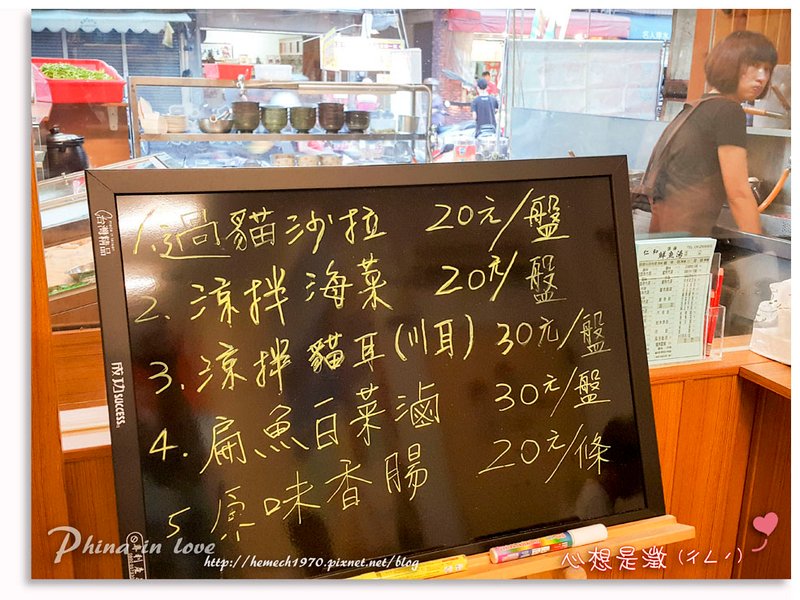 1.過貓沙拉 20元/盤
2.涼拌海菜 20元/盤
3.涼拌貓耳(川耳) 30元/盤
4.扁魚白菜滷 30元/盤
5.原味香腸 20元/條
台灣精品
成功SUCCESS
仁和
鮮魚湯
Phina in love
http://hemech1970.pixnet.net/blog
心想是澂(ㄔㄥˊ)